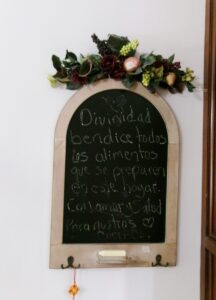 Divinidad
bendice todos
los alimentos
que se preparen
en este hogar.
Con amor y Salud
Para